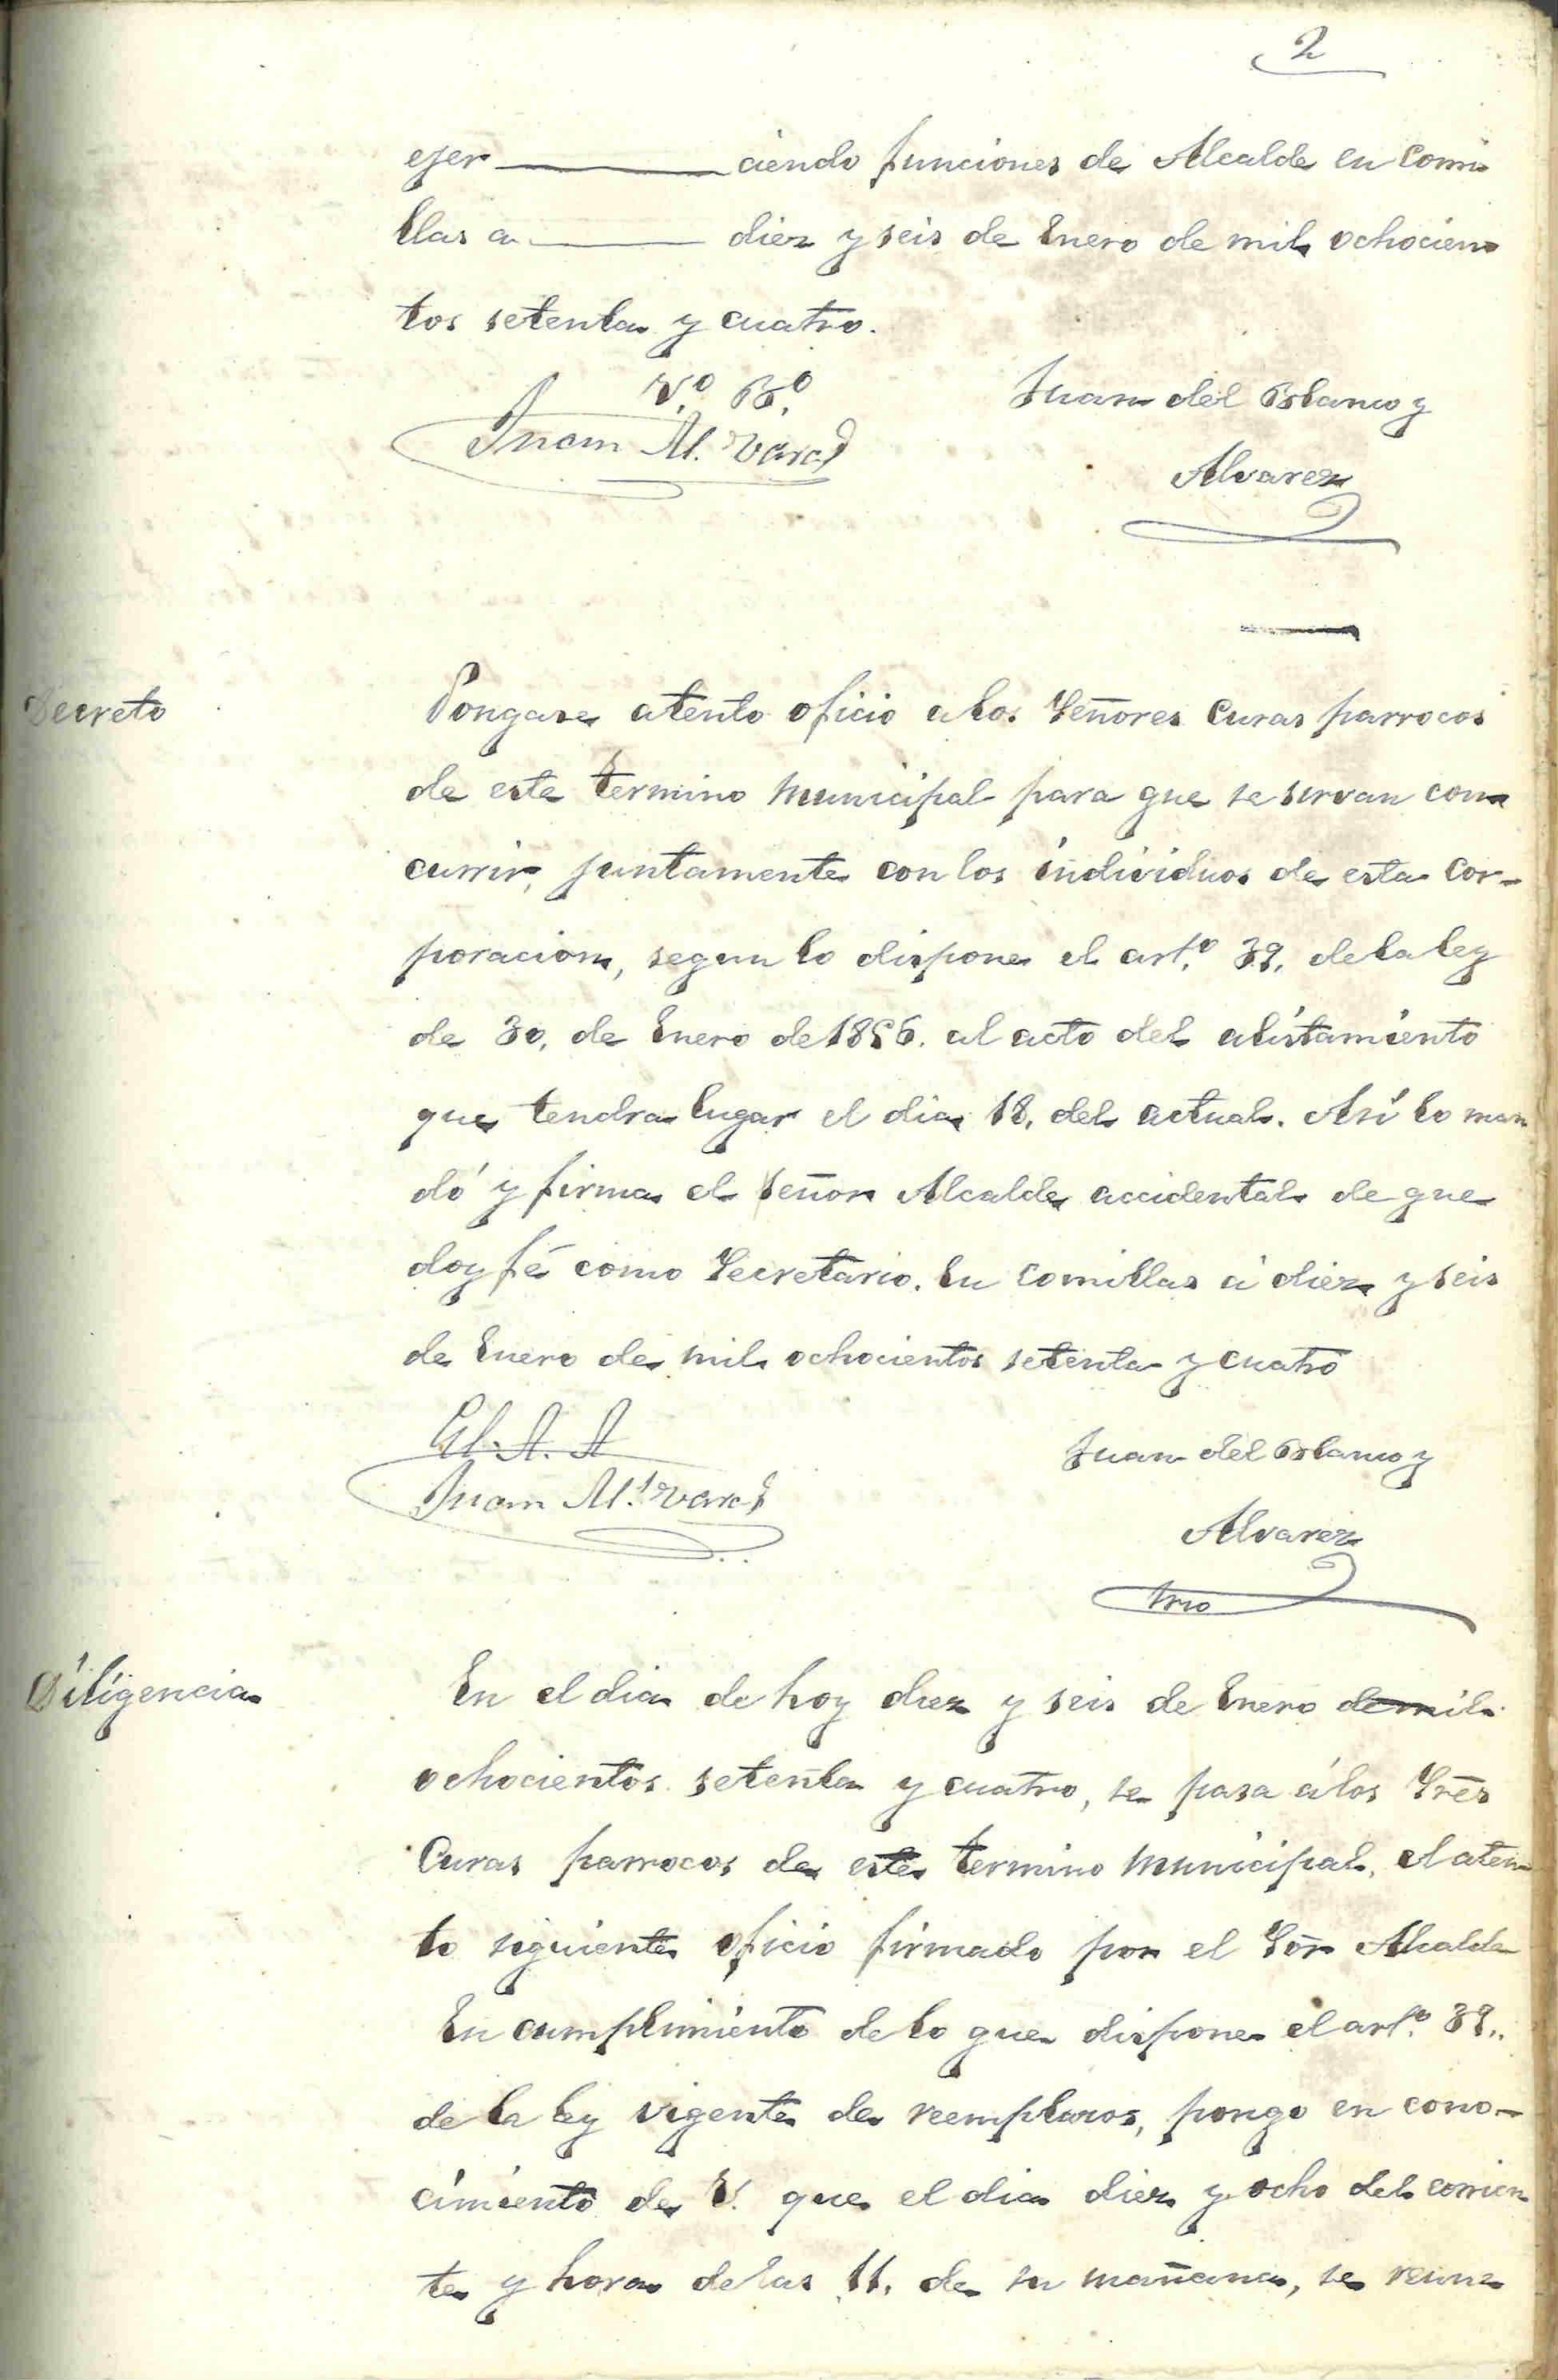 2
ejer ciendo funciones de Alcalde en Comi
llas a diez y seis de Enero de mil ochocien
tos setenta y cuatro.
V.º B.º
Juan M. Vara
Juan del Blanco y
Alvarez
Decreto
Pongase atento oficio a los Señores Curas parrocos
de este termino municipal para que se sirvan con
currir, juntamente con los individuos de esta Cor-
poracion, segun lo dispone el art.º 39. de la ley
de 30. de Enero de 1856. al acto del alistamiento
que tendra lugar el dia 18. del actual. Así lo man
dó y firma el Señor Alcalde accidental de que
doy fé como Secretario. En Comillas á diez y seis
de Enero de mil ochocientos setenta y cuatro
El A. A
Juan M. Vara
Juan del Blanco y
Alvarez
Diligencia
En el dia de hoy diez y seis de Enero de mil
ochocientos setenta y cuatro, se pasa á los Sres
Curas parrocos de este termino municipal, el aten
to siguiente oficio firmado por el Sor Alcalde
En cumplimiento de lo que dispone el art.º 39.
de la ley vigente de reemplazos, pongo en cono-
cimiento de V. que el dia diez y ocho del corrien
te y hora de las 11. de su mañana, se reune